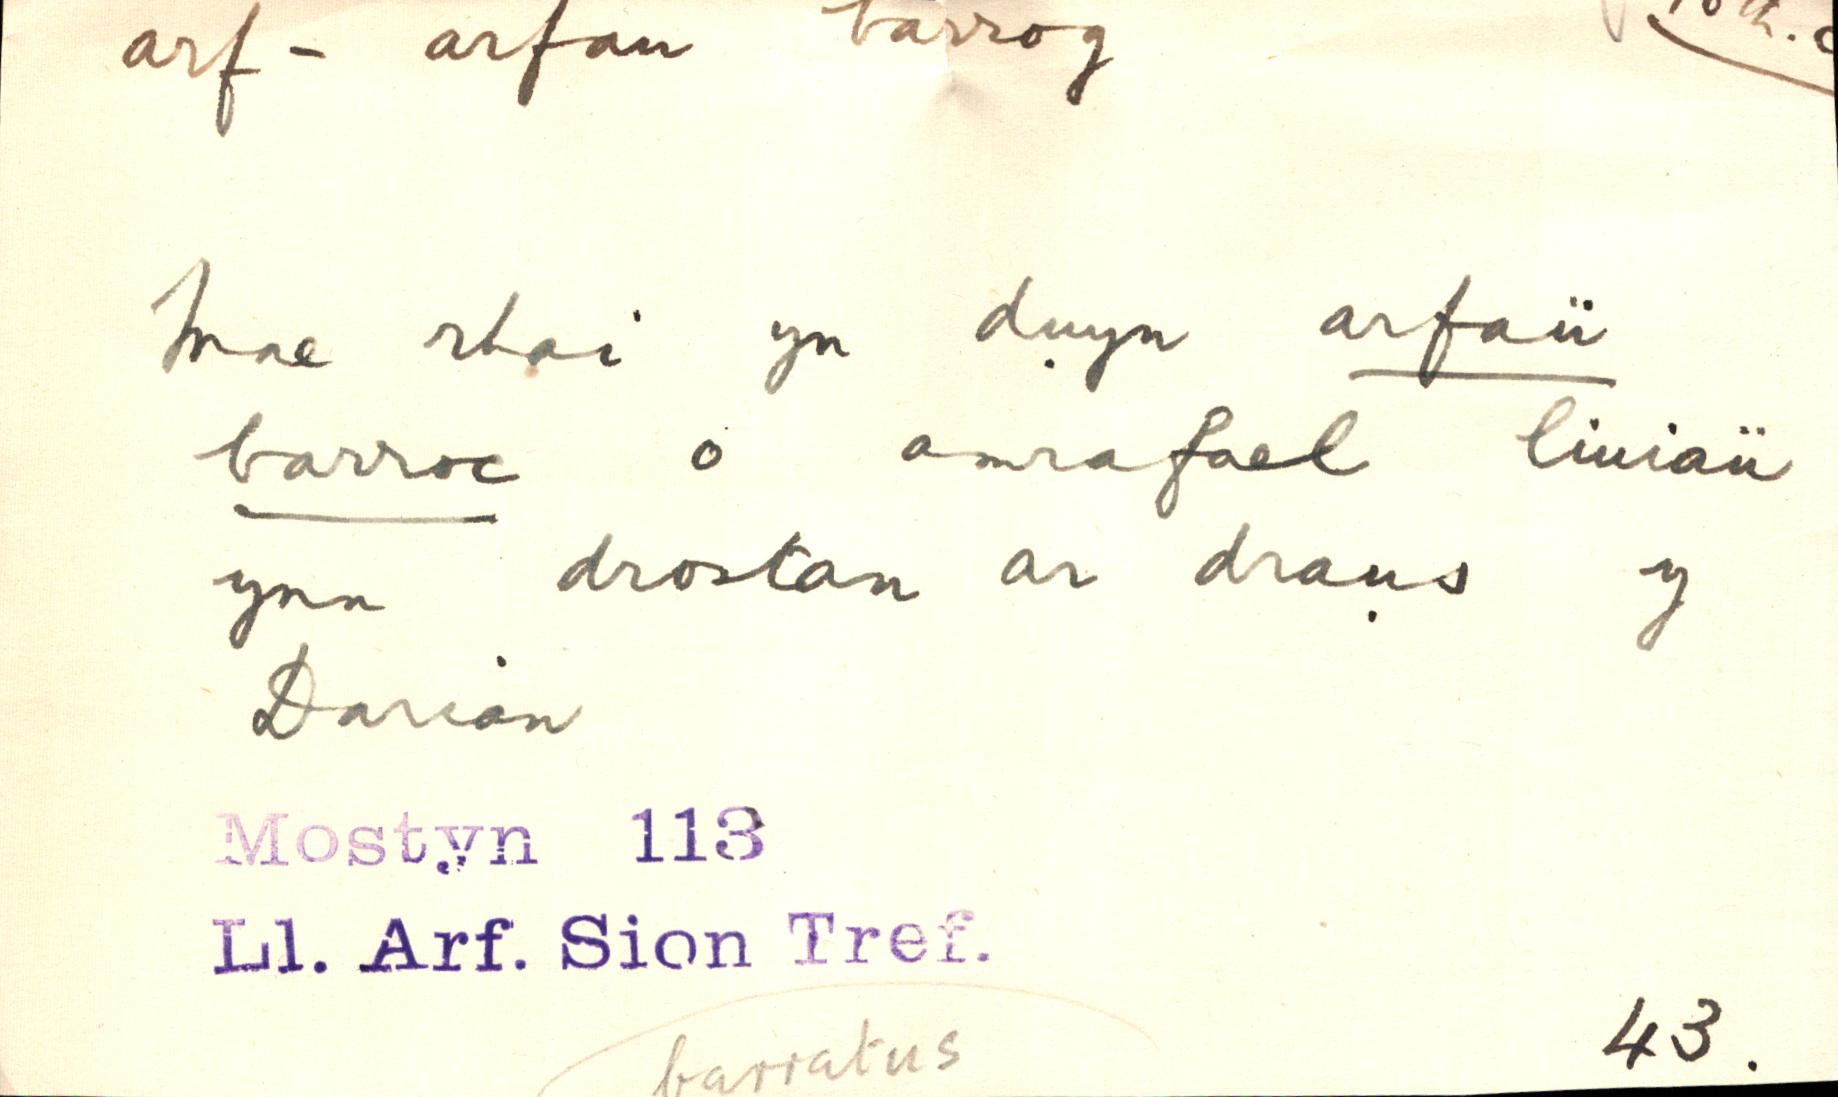 arf - arfau barrog
16th. c
Mae rhai yn dụyn arfaü
barroc o amrafael liuiaü
ynn drostan ar draụs y
Darian
Mostyn 113
Ll. Arf. Sion Tref.
43.
barratus